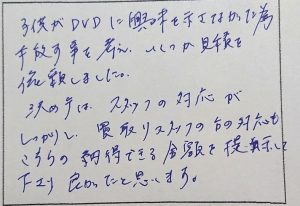 子供がDVDに興味を示さなかった為
手放す事を考え、いくつか見積を
依頼しました。
決め手は、スタッフの対応が
しっかりし、買取りスタッフの方の対応も
こちらの納得できる金額を提示して
下さり良かったと思います。